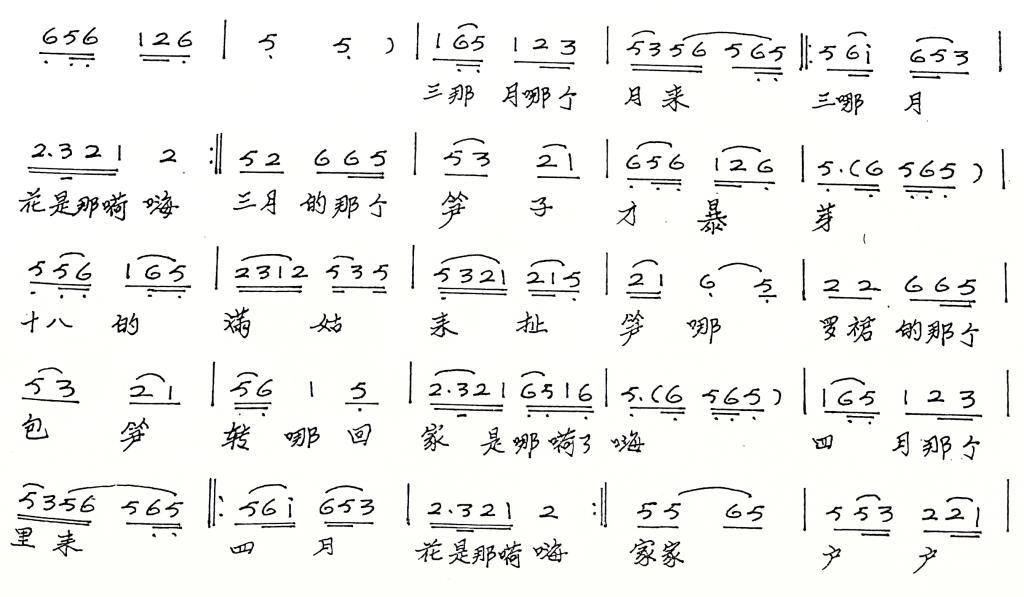 656 126 | 5 5 ) | 165 123 | 5356 565 ‖: 56i 653 |
三那 月哪个 月来 三哪 月
2.321 2 :‖ 52 665 | 53 21 | 656 126 | 5.(6 565) |
花是那嗬嗨 三月的那个 笋 子 才 暴 芽
556 165 | 2312 535 | 5321 215 | 21 6 5 | 22 665 |
十八 的 满 姑 来 扯 笋 哪 罗裙的那个
53 21 | 56 1 5 | 2.321 6516 | 5.(6 565) | 165 123 |
包 笋 转 哪 回 家 是哪嗬了嗨 四 月那个
5356 565 ‖: 56i 653 | 2.321 2 :‖ 55 65 | 553 221 |
里来 四 月 花是那嗬嗨 家家 户 户